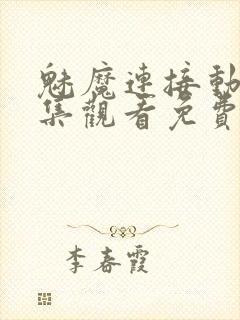 魅魔連接動
集觀看免費
李春霞